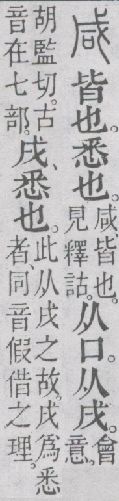 咸皆也。悉也。咸、皆也。
見釋詁。从口。从戌。會意。
胡監切。古
音在七部。戌、悉也。此从戌之故。戌爲悉
者、同音假借之理。